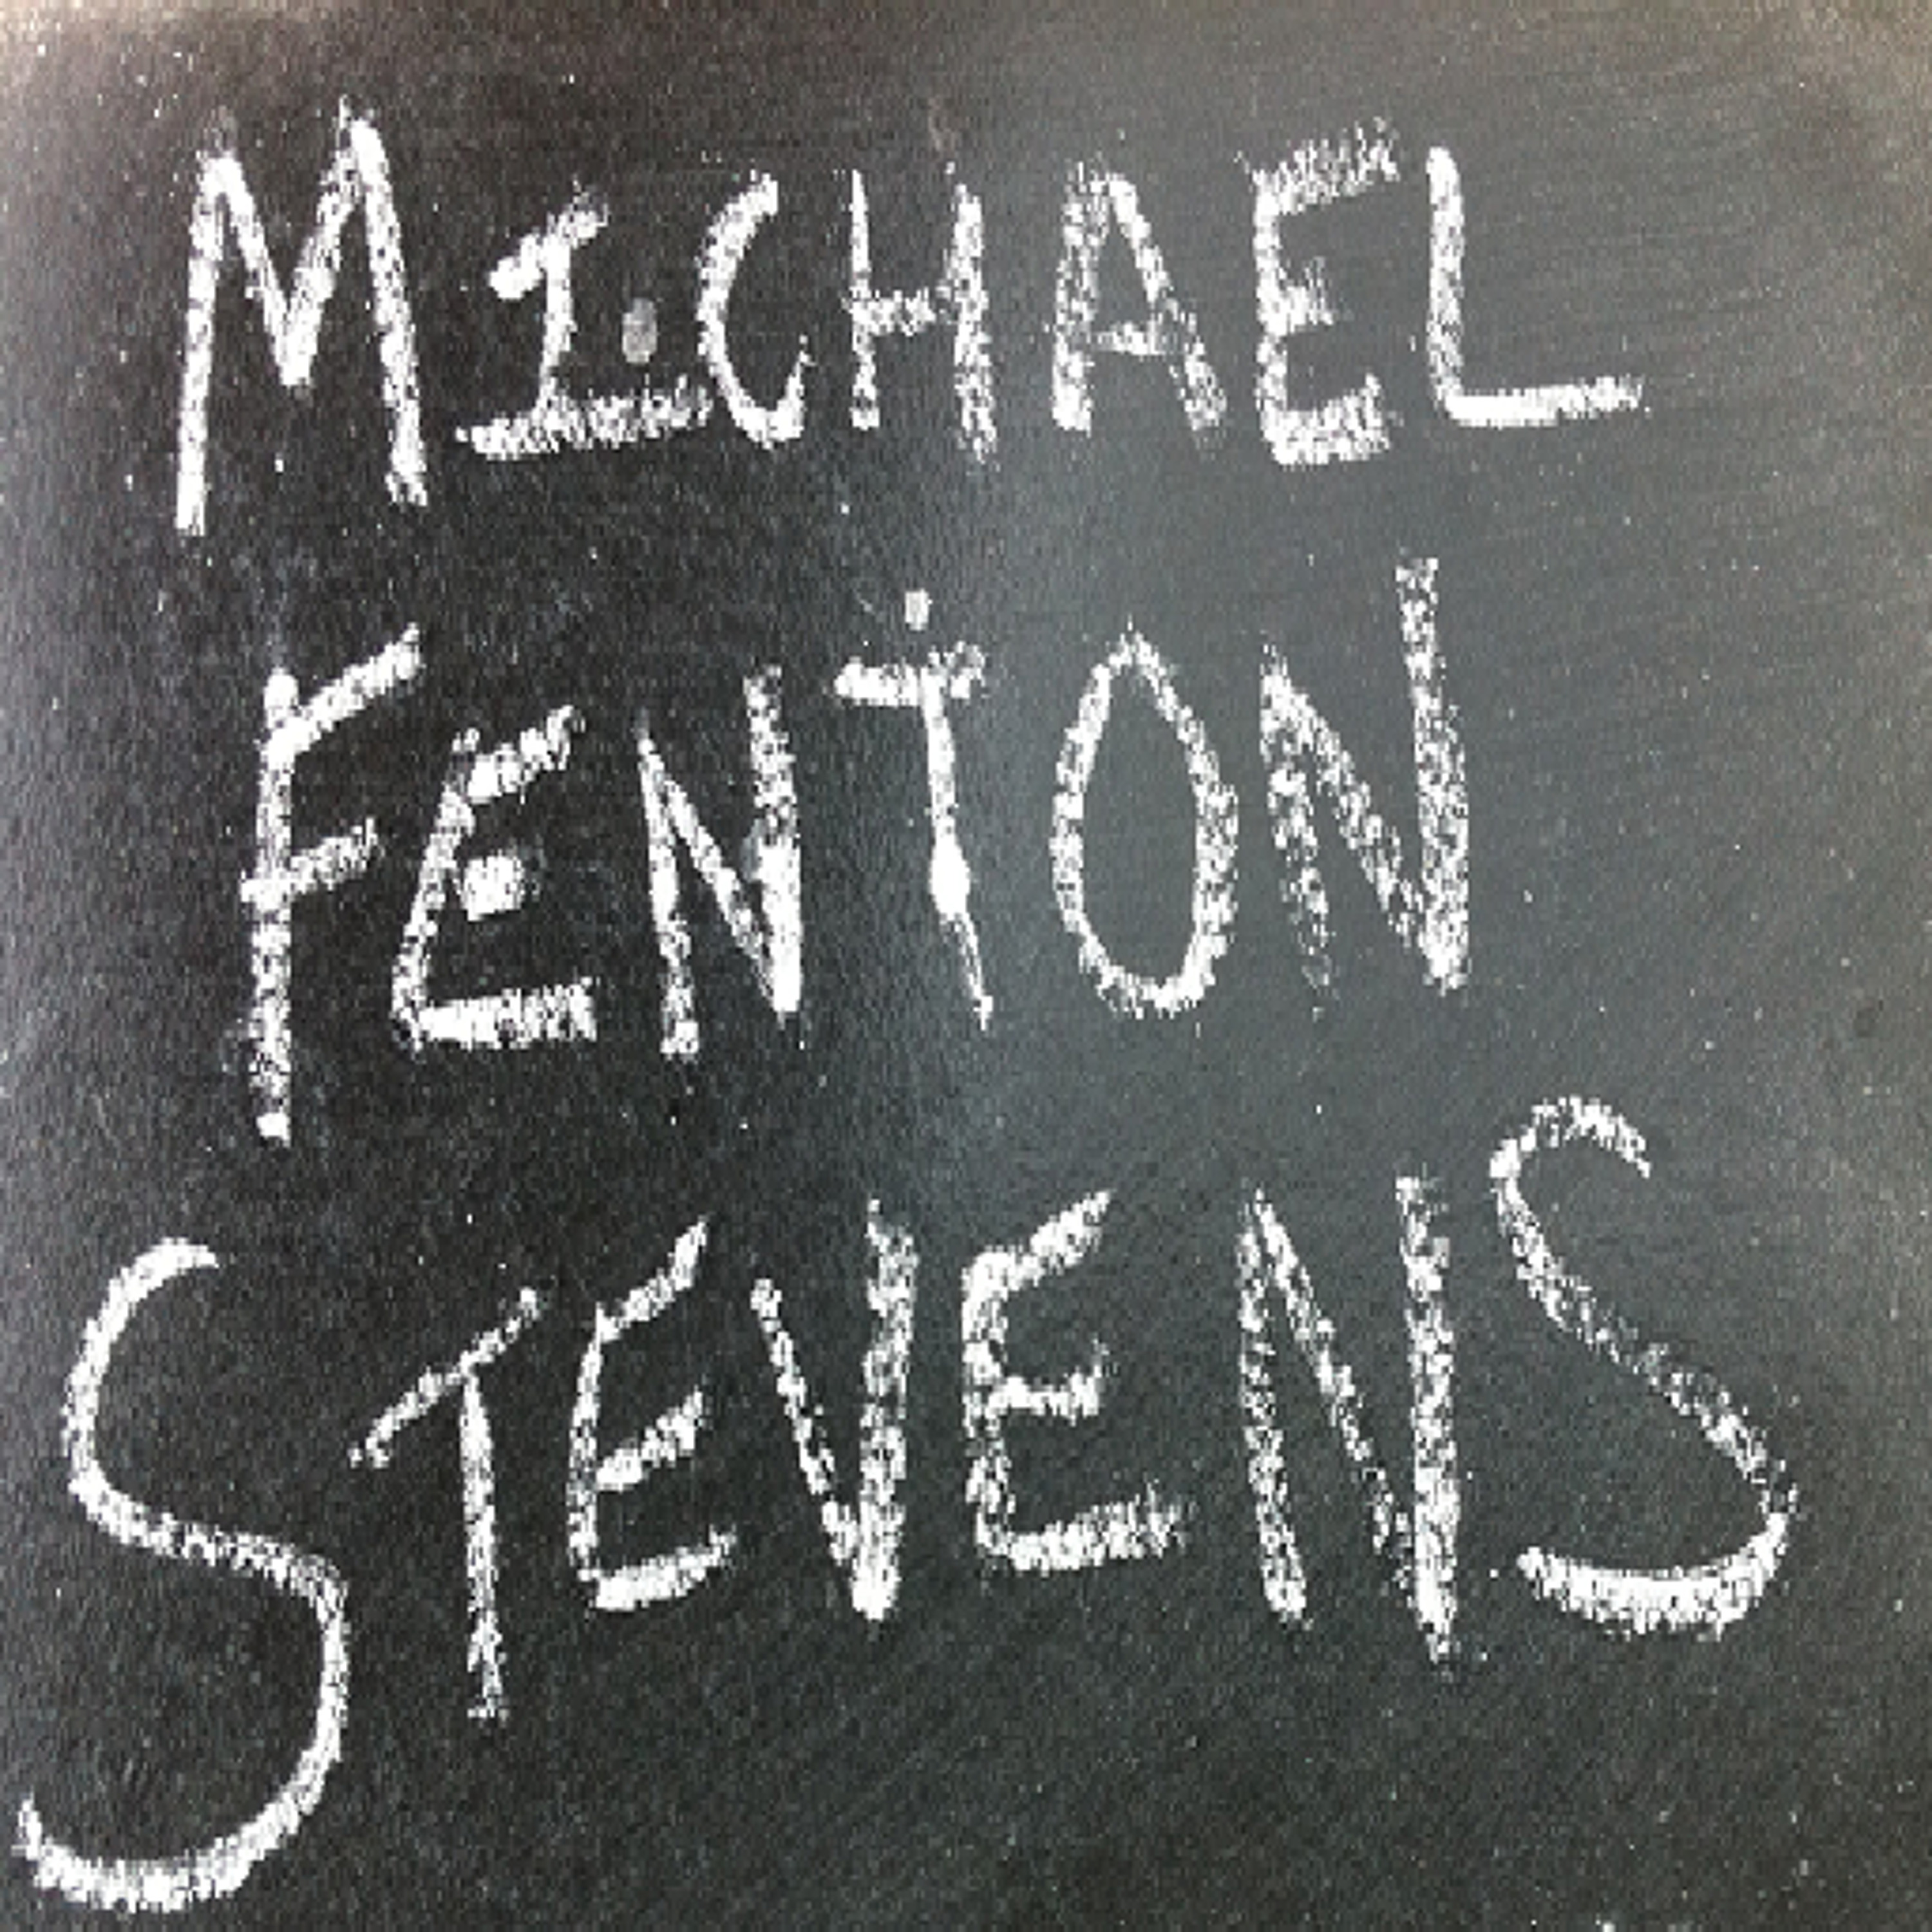 MICHAEL
FENTON
STEVENS